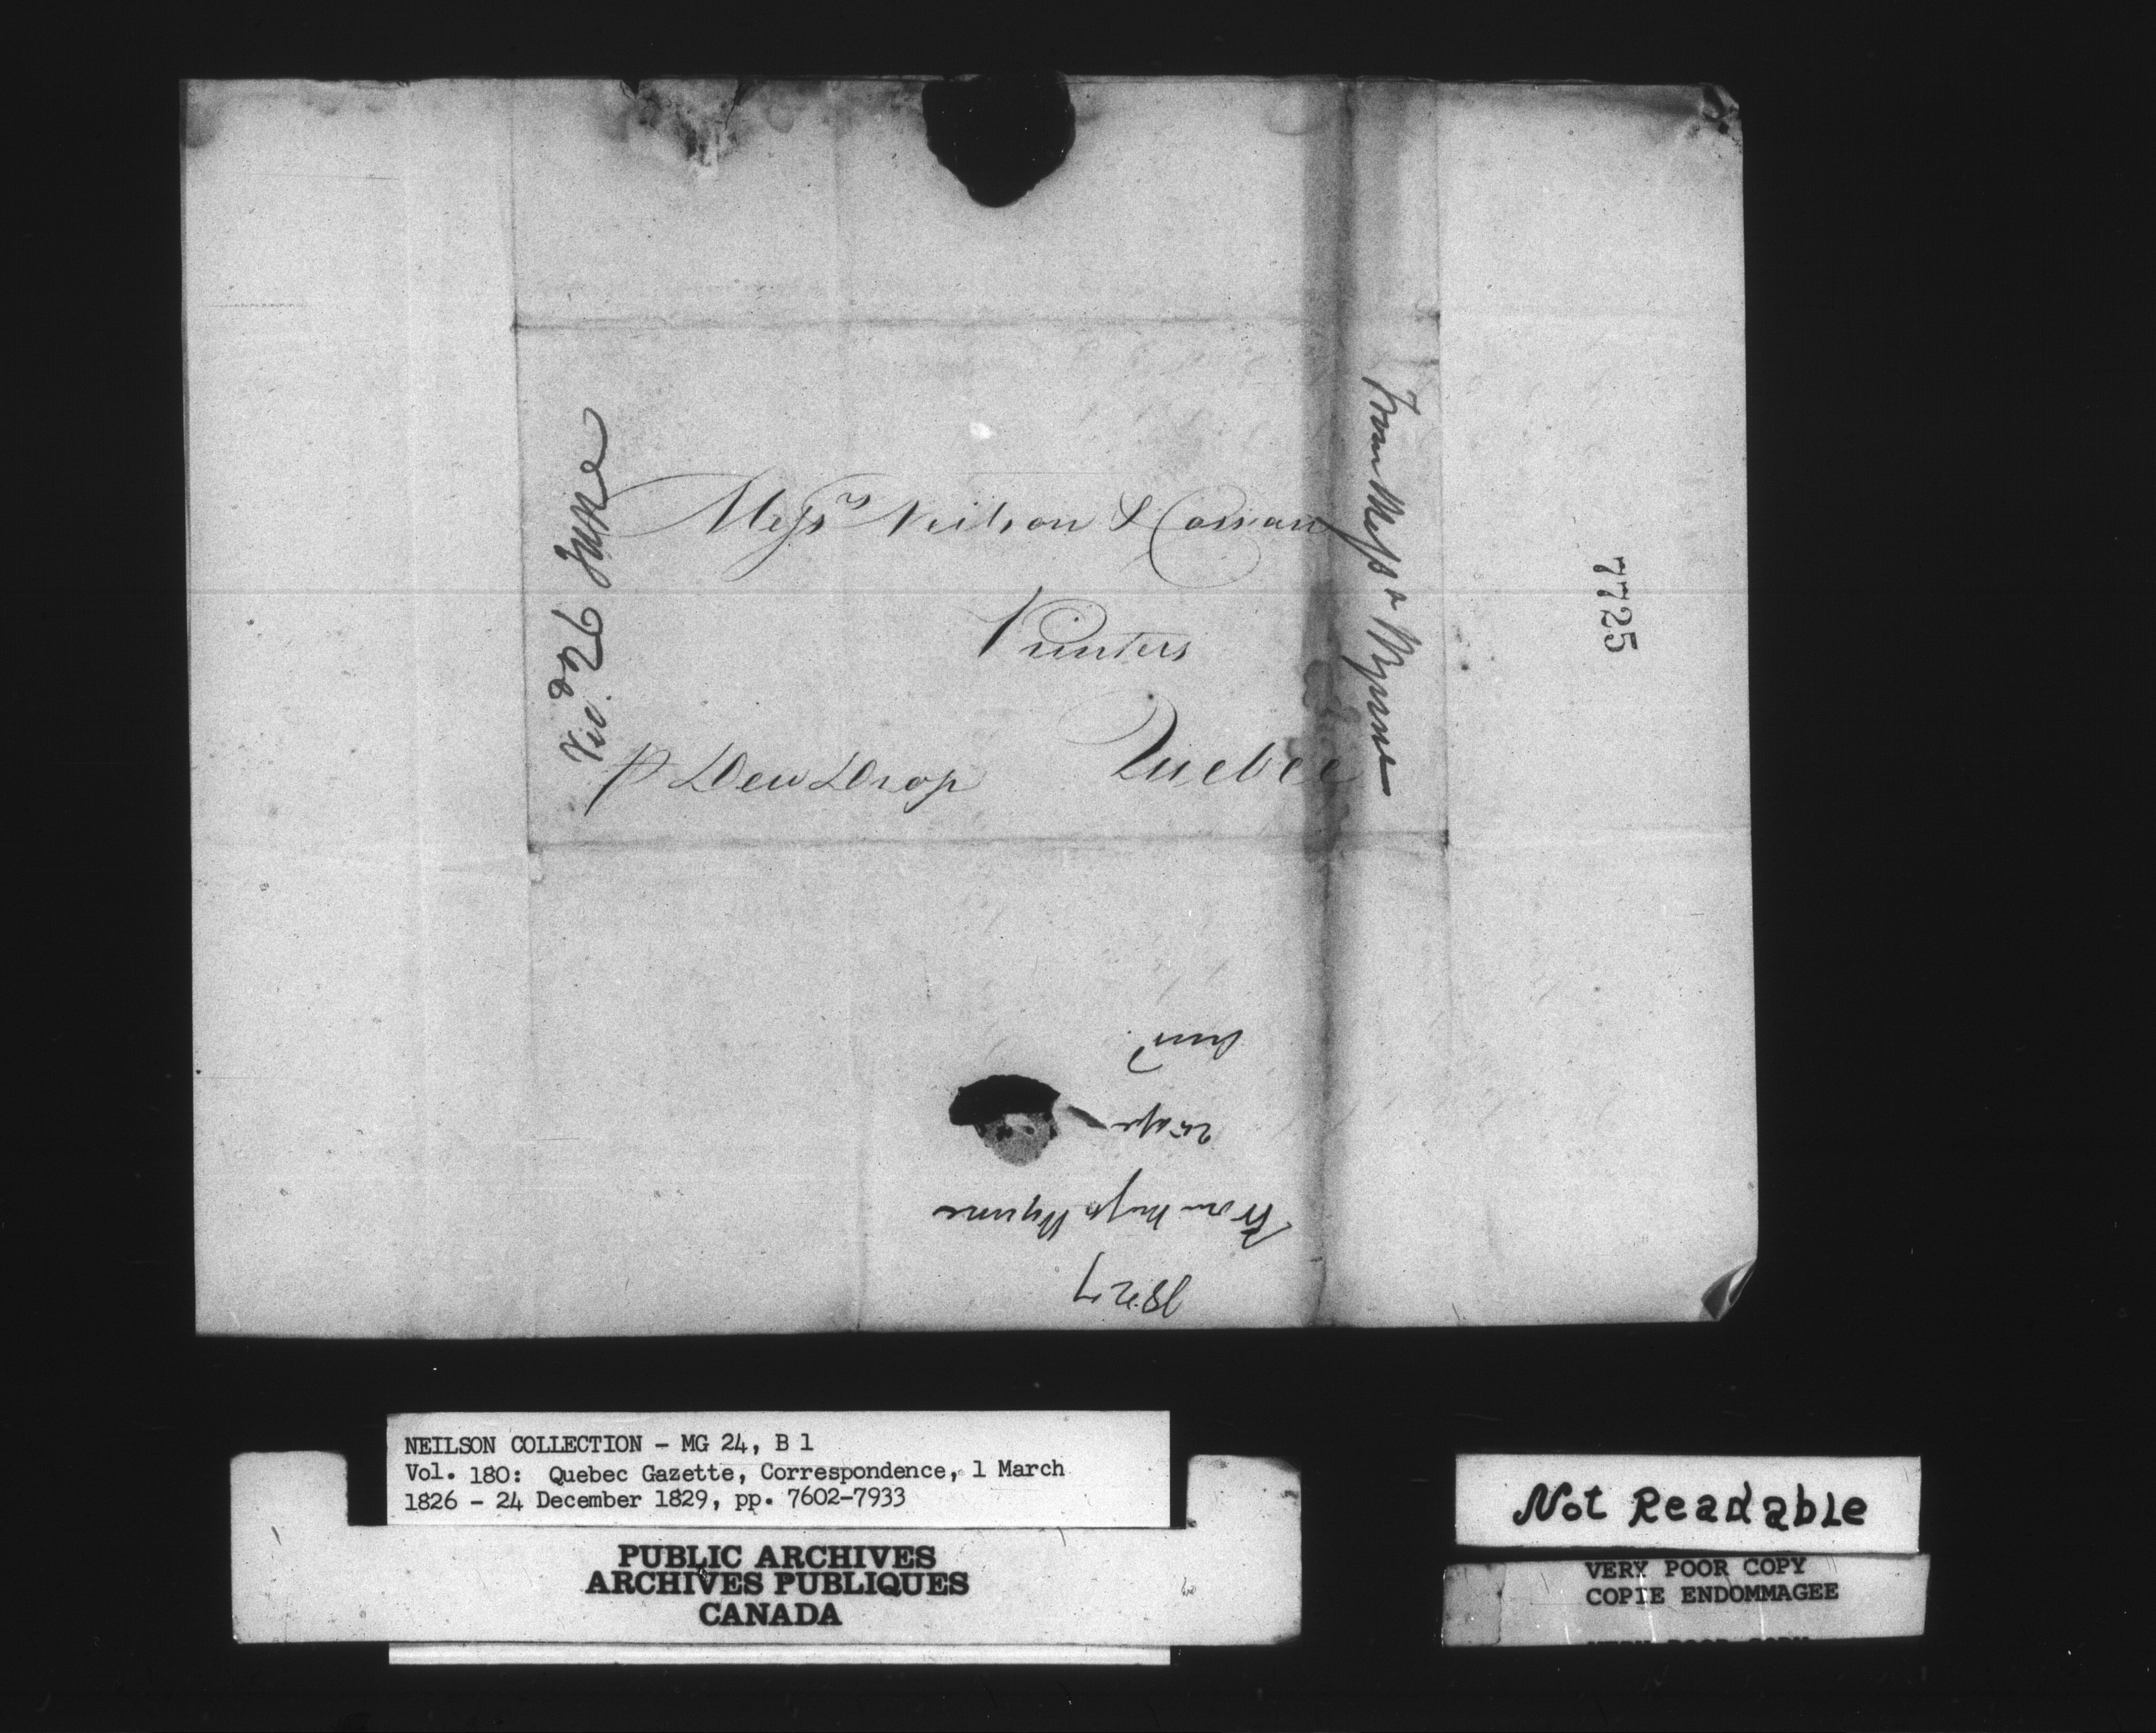 Messrs Neilson & Cowan
Printers
Quebec
p Dew Drop
Recd. 26 June
From Messrs Wynne
7725
1827
From Messrs Wynne
NEILSON COLLECTION - MG 24, B 1
Vol. 180: Quebec Gazette, Correspondence, 1 March
1826 - 24 December 1829, pp. 7602-7933
PUBLIC ARCHIVES
ARCHIVES PUBLIQUES
CANADA
Not Readable
VERY POOR COPY
COPIE ENDOMMAGEE